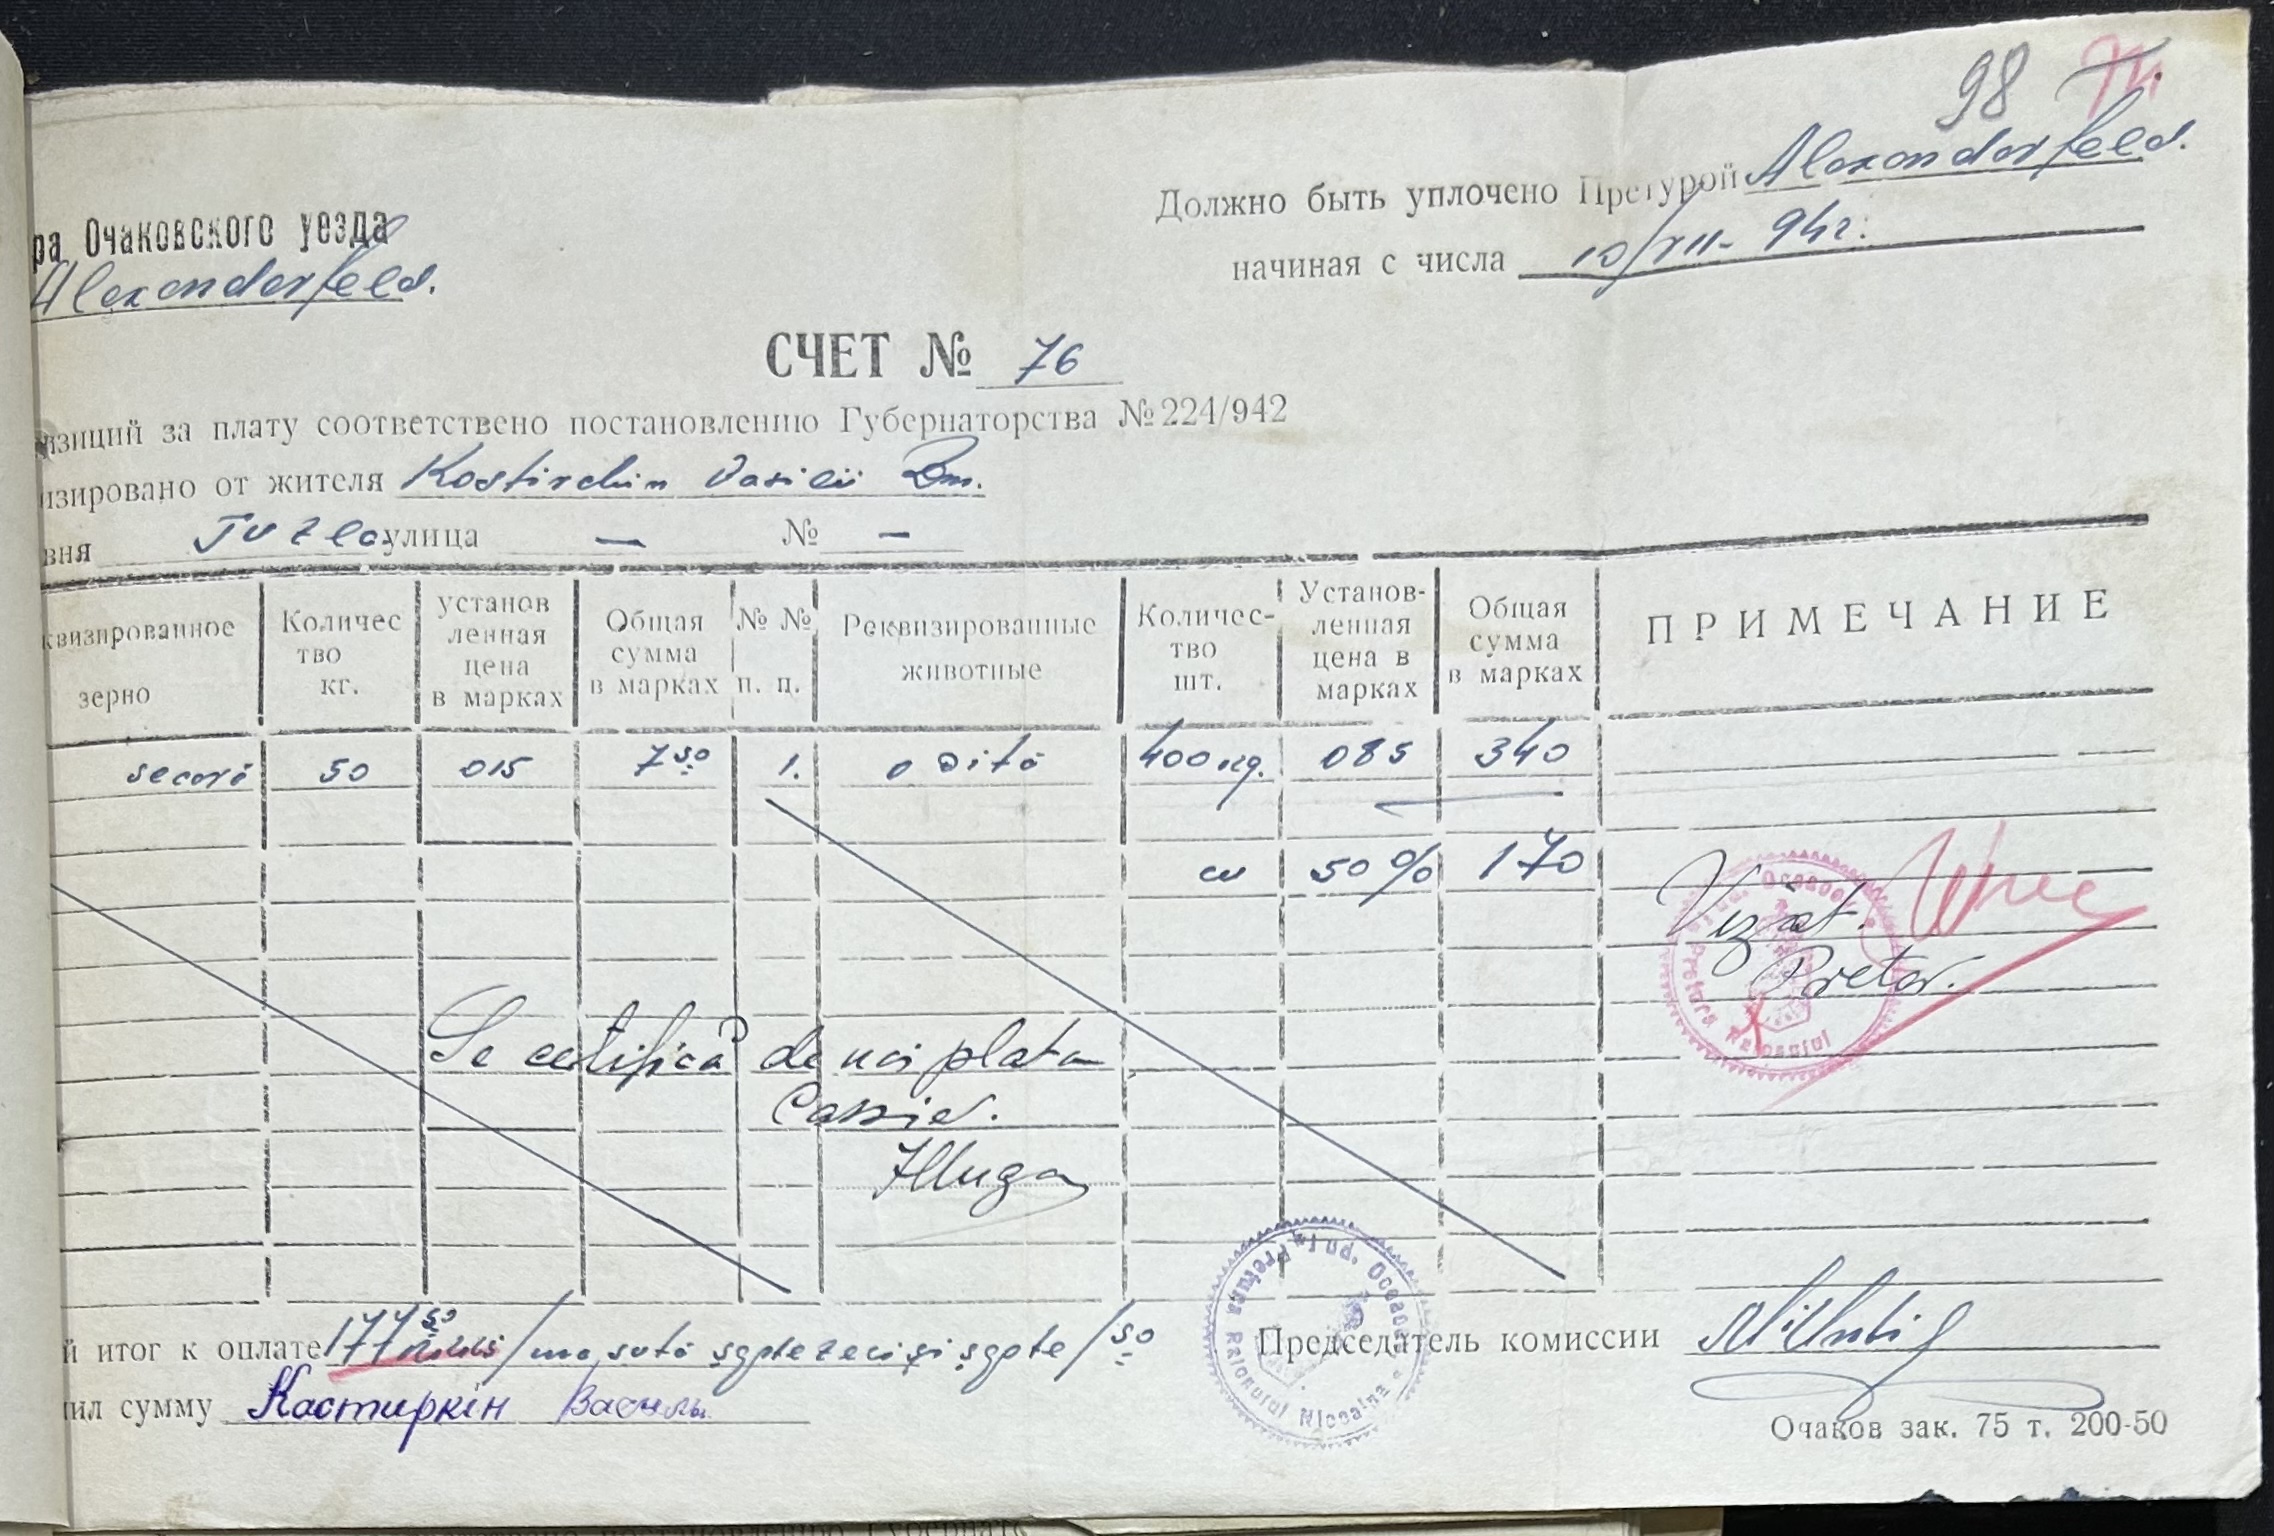 98
Должно быть уплочено Претурой Alexanderfeld.
ра Очаковского уезда
начиная с числа 10/XII- 942.
Alexanderfeld.
СЧЕТ № 76
изиций за плату соответствено постановлению Губернаторства №224/942
изировано от жителя Kostirchin Vasilii Dm.
вня Tuzla улица — № —
квизированное зерно
Количес тво кг.
установ ленная цена в марках
Общая сумма в марках
№ № п. п.
Реквизированные животные
Количес- тво шт.
Установ- ленная цена в марках
Общая сумма в марках
ПРИМЕЧАНИЕ
secară 50 015 7 50 1. o vită 400 kg. 085 340
cu 50% 170
Vizat.
Pretor.
Se certifică de noi plata
Cassier.
й итог к оплате 177 50 /una sută șaptezeci și șapte/ 50
Председатель комиссии
ил сумму Кастиркін Василь
Pretura Raionului Nicoaina Jud. Oceacov
Очаков зак. 75 т. 200-50